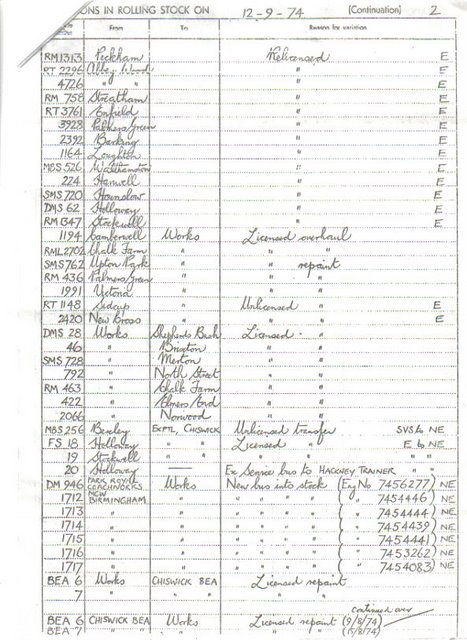 ONS IN ROLLING STOCK ON 12-9-74 (Continuation) 2
From To Reason for variation
RM1313 Peckham Relicensed E
RT 2296 Abbey Wood " E
4726 " " " E
RM 758 Streatham " E
RT 3761 Enfield " E
3928 Palmers Green " E
2392 Barking " E
1164 Loughton " E
MBS 526 Walthamstow " E
224 Hanwell " E
SMS 720 Hounslow " E
DMS 62 Holloway " E
RM 1347 Stockwell " E
1194 Camberwell Works Licensed overhaul
RML 2702 Chalk Farm " " "
SMS 762 Upton Park " " repaint
RM 436 Palmers Green " " "
1991 Victoria " " "
RT 1148 Sidcup " Unlicensed " E
2420 New Cross " " " E
DMS 28 Works Shepherds Bush Licensed "
46 " Brixton " "
SMS 728 " Merton " "
792 " North Street " "
RM 463 " Chalk Farm " "
422 " Elmers End " "
2066 " Norwood " "
MBS 256 Bexley EXPTL, CHISWICK Unlicensed transfer SVS to NE
FS 18 Holloway " " Licensed " E to NE
19 Stockwell " " " " " "
20 Holloway — Ex Service bus to HACKNEY TRAINER " "
DM 946 PARK ROYAL COACHWORKS Works New bus into stock (Eng No 7456277) NE
1712 NEW BIRMINGHAM " " " " " ( " 7454446) NE
1713 " " " " " " ( " 7454444) NE
1714 " " " " " " ( " 7454439) NE
1715 " " " " " " ( " 7454441) NE
1716 " " " " " " ( " 7453262) NE
1717 " " " " " " ( " 7454083) NE
BEA 6 Works CHISWICK BEA Licensed repaint
7 " " " " "
continued over
BEA 6 CHISWICK BEA Works Licensed repaint (9/8/74)
BEA 7 " " " " " (5/8/74)